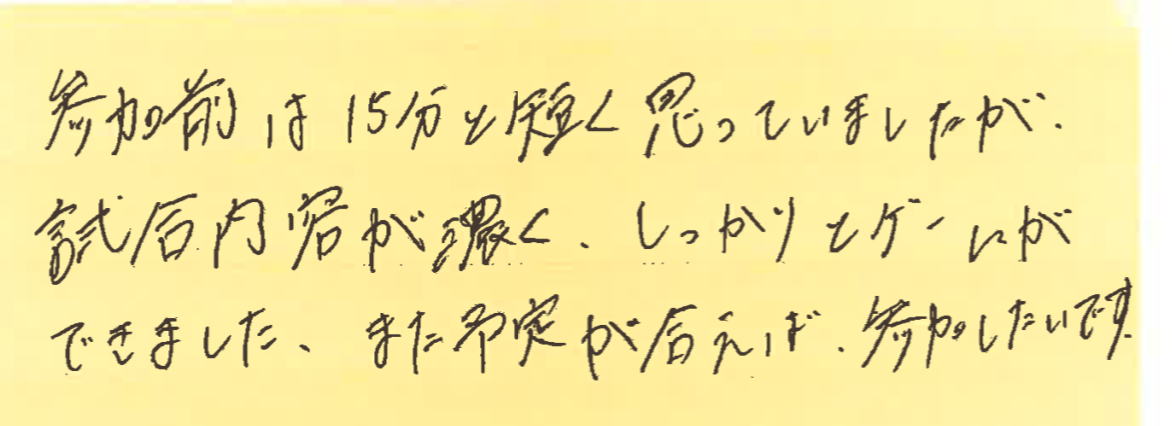 参加前は15分と短く思っていましたが、
試合内容が濃く、しっかりとゲームが
できました、また予定が合えば、参加したいです